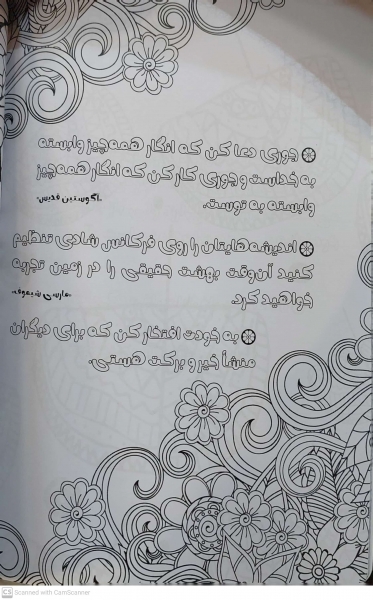 جوری دعا کن که انگار همه‌چیز وابسته
به خداست و جوری کار کن که انگار همه‌چیز
وابسته به توست.
«آگوستین قدیس»
اندیشه‌هایتان را روی فرکانس شادی تنظیم
کنید آن‌وقت بهشت حقیقی را در زمین تجربه
خواهید کرد.
«مارسی شیموف»
به خودت افتخار کن که برای دیگران
منشأ خیر و برکت هستی.
CS Scanned with CamScanner